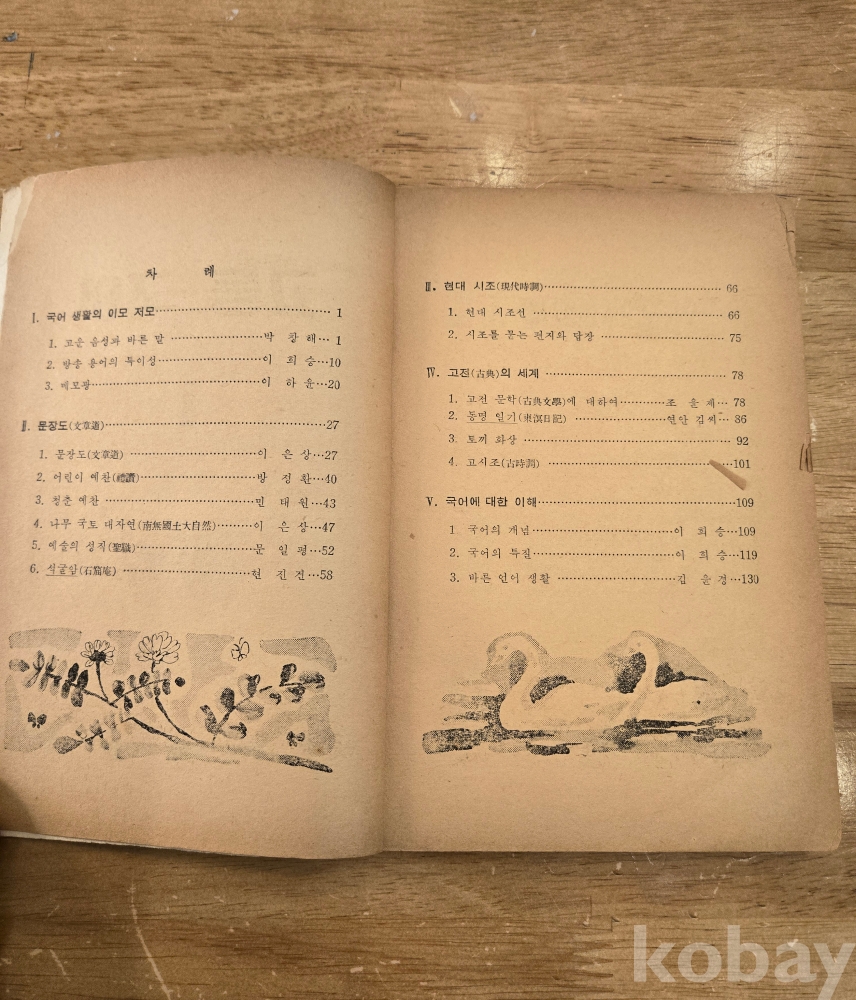 차 례
Ⅰ. 국어 생활의 이모 저모 1
1. 고운 음성과 바른 말 박 창 해 1
2. 방송 용어의 특이성 이 희 승 10
3. 메모광 이 하 윤 20
Ⅱ. 문장도(文章道) 27
1. 문장도(文章道) 이 은 상 27
2. 어린이 예찬(禮讚) 방 정 환 40
3. 청춘 예찬 민 태 원 43
4. 나무 국토 대자연(南無國土大自然) 이 은 상 47
5. 예술의 성직(聖職) 문 일 평 52
6. 석굴암(石窟庵) 현 진 건 58
Ⅲ. 현대 시조(現代時調) 66
1. 현대 시조선 66
2. 시조를 묻는 편지와 답장 75
Ⅳ. 고전(古典)의 세계 78
1. 고전 문학(古典文學)에 대하여 조 윤 제 78
2. 동명 일기(東溟日記) 연안 김씨 86
3. 토끼 화상 92
4. 고시조(古時調) 101
Ⅴ. 국어에 대한 이해 109
1 국어의 개념 이 희 승 109
2. 국어의 특질 이 희 승 119
3. 바른 언어 생활 김 윤 경 130
kobay